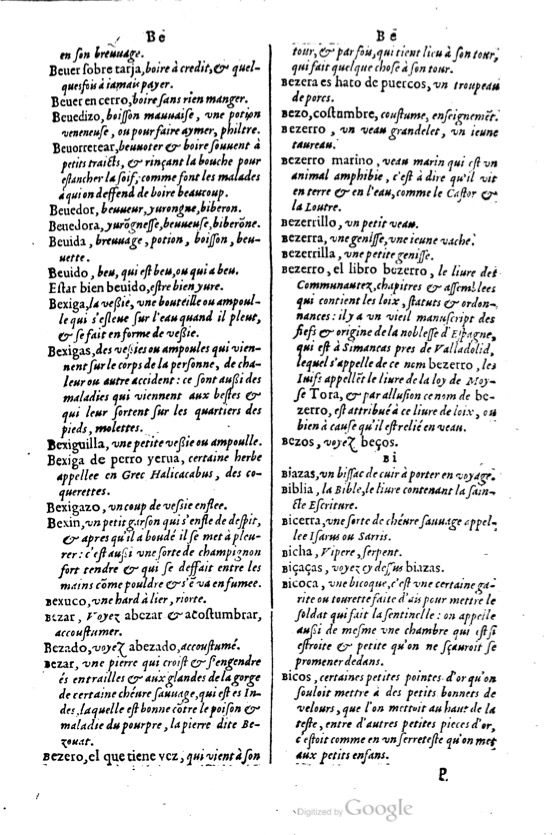 Be
en son breuuage.
Beuer sobre tarja, boire à credit, & quel-
quesfois à iamais payer.
Beuer en cerro, boire sans rien manger.
Beuedizo, boisson mauuaise, vne potion
veneneuse, ou pour faire aymer, philtre.
Beuorretear, beuuoter & boire souuent à
petits traicts, & rinçant la bouche pour
estancher la soif, comme font les malades
à qui on deffend de boire beaucoup.
Beuedor, beuueur, yurongne, biberon.
Beuedora, yurõgnesse, beuueuse, biberõne.
Beuida, breuuage, potion, boisson, beu-
uette.
Beuido, beu, qui est beu, ou qui a beu.
Estar bien beuido, estre bien yure.
Bexiga, la veßie, vne bouteille ou ampoul-
le qui s'esleue sur l'eau quand il pleut,
& se fait en forme de veßie.
Bexigas, des veßies ou ampoules qui vien-
nent sur le corps de la personne, de cha-
leur ou autre accident: ce sont außi des
maladies qui viennent aux bestes &
qui leur sortent sur les quartiers des
pieds, molettes.
Bexiguilla, vne petite veßie ou ampoulle.
Bexiga de perro yerua, certaine herbe
appellee en Grec Halicacabus, des co-
querettes.
Bexigazo, vn coup de vessie enflee.
Bexin, vn petit garson qui s'enfle de despit,
& apres qu'il a boudé il se met à pleu-
rer: c'est außi vne sorte de champignon
fort tendre & qui se deffait entre les
mains cõme pouldre & s'ẽ va en fumee.
Bexuco, vne hard à lier, riorte.
Bezar, Voyez abezar & acostumbrar,
accoustumer.
Bezado, voyez abezado, accoustumé.
Bezar, vne pierre qui croist & s'engendre
és entrailles & aux glandes de la gorge
de certaine chéure sauuage, qui est es In-
des, laquelle est bonne cõtre le poison &
maladie du pourpre, la pierre dite Be-
zouat.
Bezero, el que tiene vez, qui vient à son
Be
tour, & par fois, qui tient lieu à son tour,
qui fait quelque chose à son tour.
Bezera es hato de puercos, vn troupeau
de porcs.
Bezo, costumbre, coustume, enseignemẽt.
Bezerro, vn veau grandelet, vn ieune
taureau.
Bezerro marino, veau marin qui est vn
animal amphibie, c'est à dire qu'il vit
en terre & en l'eau, comme le Castor &
la Loutre.
Bezerrillo, vn petit veau.
Bezerra, vne genisse, vne ieune vache.
Bezerrilla, vne petite genisse.
Bezerro, el libro bezerro, le liure des
Communautez, chapitres & assemblees
qui contient les loix, statuts & ordon-
nances: il y a vn vieil manuscript des
fiefs & origine de la noblesse d'Espagne,
qui est à Simancas pres de Valladolid,
lequel s'appelle de ce nom bezerro, les
Iuifs appellẽt le liure de la loy de Moy-
se Tora, & par allusion ce nom de be-
zerro, est attribué à ce liure de loix, ou
bien à cause qu'il est relié en veau.
Bezos, voyez beços.
Bi
Biazas, vn bissac de cuir à porter en voyage.
Biblia, la Bible, le liure contenant la sain-
cte Escriture.
Bicerra, vne sorte de chéure sauuage appel-
lee Isarus ou Sarris.
Bicha, Vipere, serpent.
Biçaças, voyez cy dessus biazas.
Bicoca, vne bicoque, c'est vne certaine ga-
rite ou tourette faite d'ais pour mettre le
soldat qui fait la sentinelle: on appelle
außi de mesme vne chambre qui est si
estroite & petite qu'on ne sçauroit se
promener dedans.
Bicos, certaines petites pointes d'or qu'on
souloit mettre à des petits bonnets de
velours, que l'on mettoit au haut de la
teste, entre d'autres petites pieces d'or,
c'estoit comme en vn serreteste qu'on met
aux petits enfans.
P
Digitized by Google